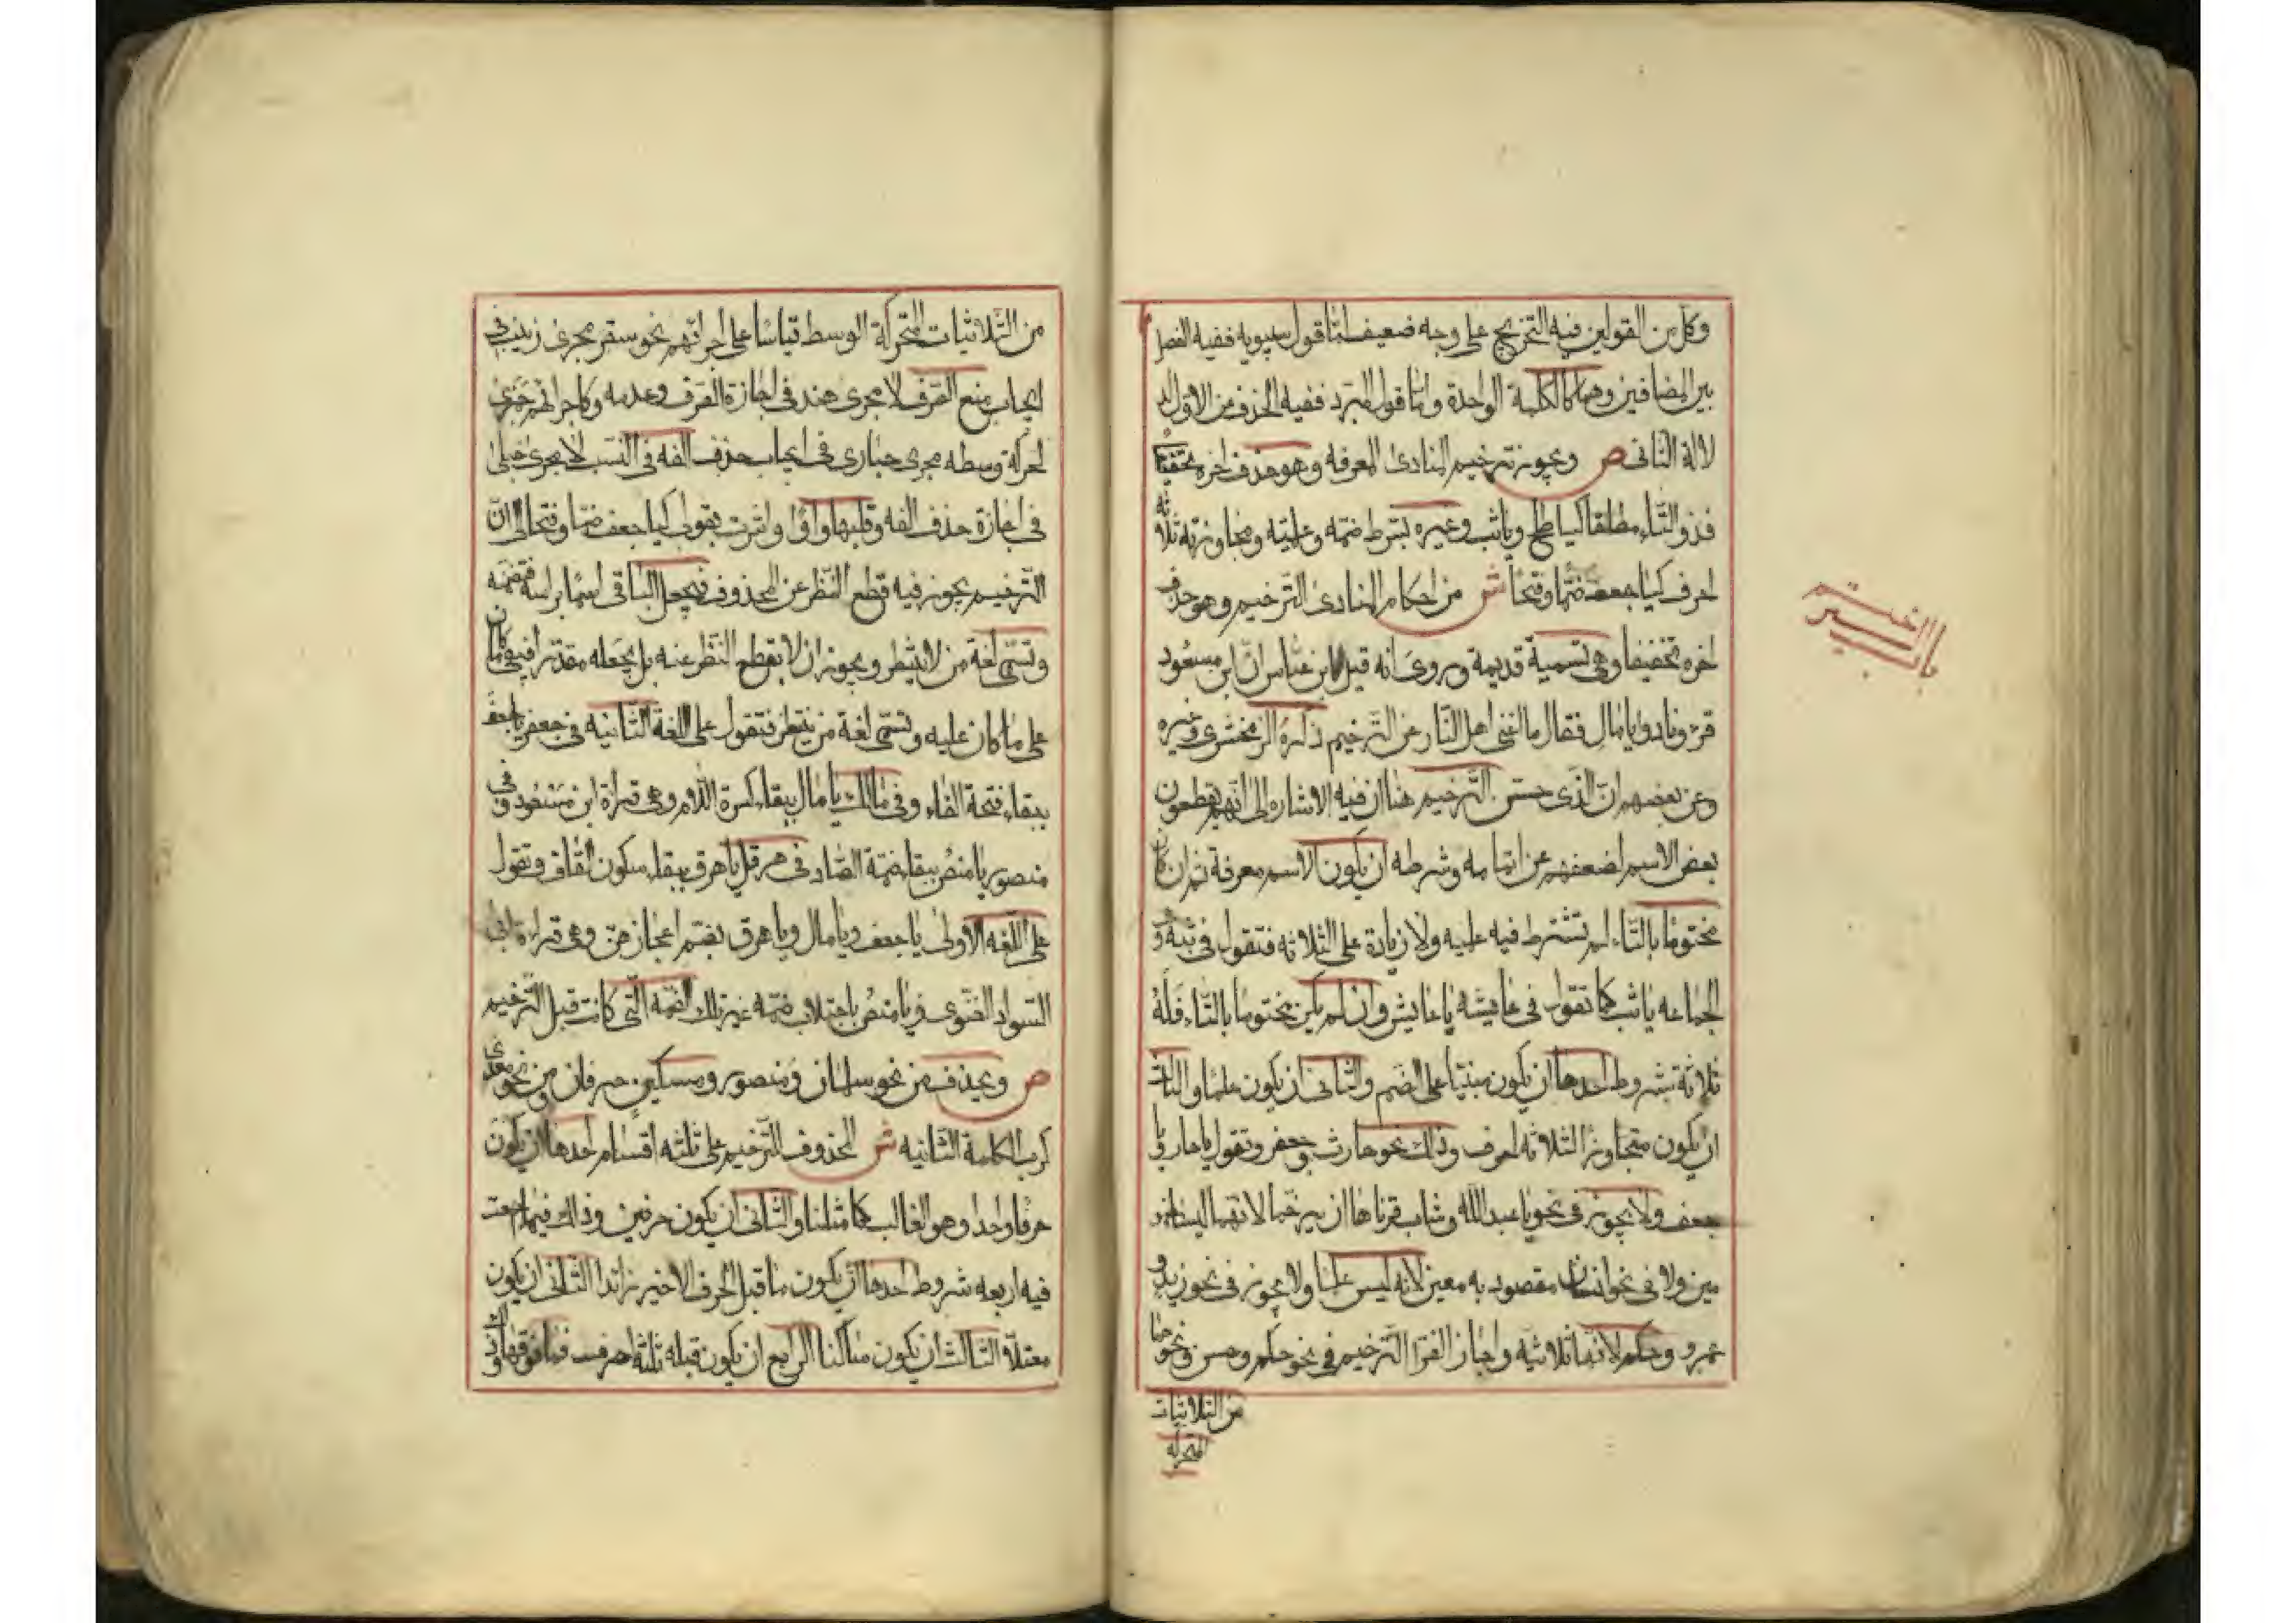 وكل من القولين فيه التخريج على وجه ضعيف امّا قول سيبويه ففيه الفصل
بين المضافين وهما كالكلمة الواحدة وامّا قول المبرد ففيه الحذف من الاول لد
لالة الثانى ص ويجوز ترخيم المنادى المعرفه وهو حذف اخره تخفيفا
فذو التّاء مطلقا كيا طلح وياثب وغيره بشرط ضمّه وعلميّته ومجاوزته ثلاثة
احرف كيا جعف ضمّا وفتحا ش من احكام المنادى الترخيم وهو حذف
اخره تخفيفا وهى تسمية قديمة وروى انه قيل لابن عبّاس انّ ابن مسعود
قرء ونادوا يا مالِ فقال ما اغنى اهل النّار عن التّرخيم ذكره الزمخشرى وغيره
وعن بعضهم ان الّذى حسّن الترخيم هنا ان فيه الاشاره الى انّهم يقطعون
بعض الاسم لضعفهم عن اتمامه وشرطه ان يكون الاسم معرفة ثم ان كان
مختوما بالتّاء لم تشترط فيه علميه ولا زيادة على الثلاثه فتقول فى ثبة و
الجماعه ياثب كما تقول فى عايشه يا عايش وان لم يكن مختوما بالتّاء فله
ثلاثة شروط احدها ان يكون مبنيّا على الضم والثانى ان يكون علمًا والثالث
ان يكون متجاوزًا الثلاثه احرف وذلك نحو حارث وجعفر وتقول يا حار ويا
جعف ولا يجوز فى نحو يا عبد الله وشاب قرناها ان يرخّما لانهما ليسا مضمو
مين ولا فى نحو انسان مقصود به معين لانه ليس علمًا ولا يجوز فى نحو زيد و
عمرو وحكم لانها ثلاثيه واجاز الفرّا الترخيم فى نحو حكم وحسن ونحوهما
من الثلاثيات
المتحركه
باب
الترخيم
من الثّلاثيّات المتحركة الوسط قياسًا على اجرائهم نحو سقر مجرى زينب فى
ايجاب منع الصّرف لا مجرى هند فى اجازة الصرف وعدمه وكاجرائهم جمزى
لحركة وسطه مجرى حبارى فى ايجاب حذف الفه فى النسب لا مجرى حبلى
فى اجازة حذف الفه وقلبها واوًا واشرت بقولى كيا جعف ضمّا وفتحا الى انّ
الترخيم يجوز فيه قطع النّظر عن المحذوف فيجعل الباقى اسمًا براسه فتضمّه
وتسمّى لغة من لا ينتظر ويجوز ان لا يقطع النظر عنه بل يجعله مقدّرا فيبقى ما كان
على ما كان عليه وتسمّى لغة من ينتظر فتقول على اللغة الثانيه فى جعفر يا جعفَ
ببقاء فتحة الفاء وفى مالك يا مال ببقاء كسرة اللام وهى قراءة ابن مسعود وفى
منصور يا منصُ ببقاء ضمّة الصّاد وفى هرقل يا هرق ببقاء سكون القاف وتقول
على اللّغه الاولى يا جعف ويا مال ويا هرق بضم اعجازهنّ وهى قراءة ابى
السّوار الغنوى ويا منصُ باجتلاب ضمّه غير تلك الضمّه التى كانت قبل الترخيم
ص ويحذف من نحو سلمان ومنصور ومسكين حرفان ومن نحو معدى
كرب الكلمة الثّانيه ش المحذوف للتّرخيم على ثلثه اقسام احدها ان يكون
حرفًا واحدا وهو الغالب كما مثلنا والثانى ان يكون حرفين وذلك فيما اجتمعت
فيه اربعه شروط احدها ان يكون ما قبل الحرف الاخير زائدا الثانى ان يكون
معتلّا الثالث ان يكون ساكنا الرابع ان يكون قبله ثلثة احرف فما فوقها وذلك